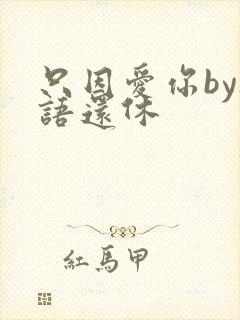 只因愛你by
語還休
紅馬甲